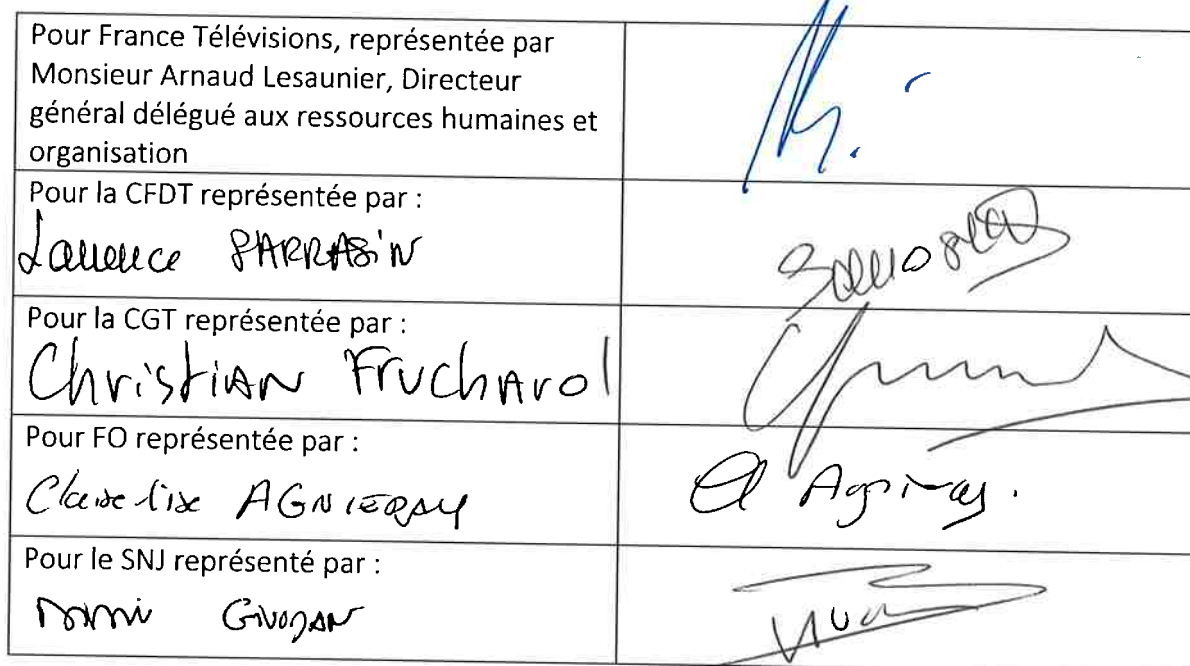 Pour France Télévisions, représentée par
Monsieur Arnaud Lesaunier, Directeur
général délégué aux ressources humaines et
organisation
Pour la CFDT représentée par :
Laurence PARRASIN
Pour la CGT représentée par :
Christian Fruchard
Pour FO représentée par :
AGNIERAY
Pour le SNJ représenté par :